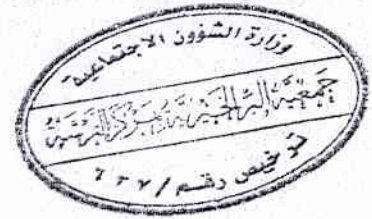 وزارة الشؤون الاجتماعية
جمعية البر الخيرية بمركز
ترخيص رقم /